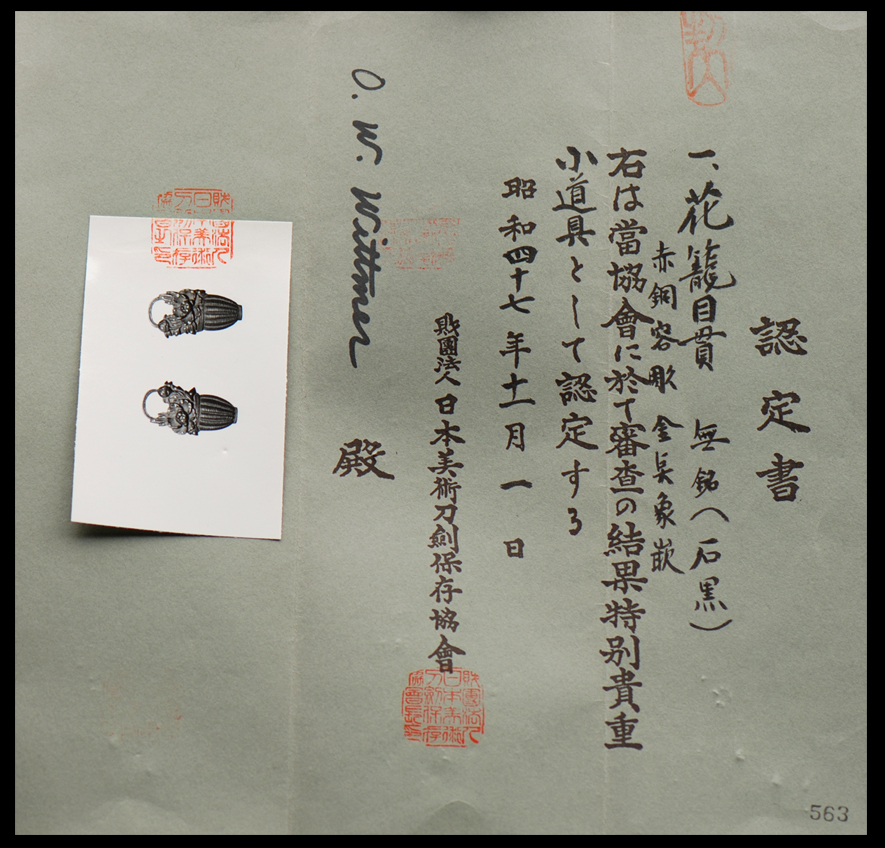 認定書
一、花籠目貫 無銘(石黒)
赤銅容彫 金色象嵌
右は當協會に於て審査の結果特別貴重
小道具として認定する
昭和四十七年十一月一日
財團法人 日本美術刀劍保存協會
O. W. Wittmer 殿
563